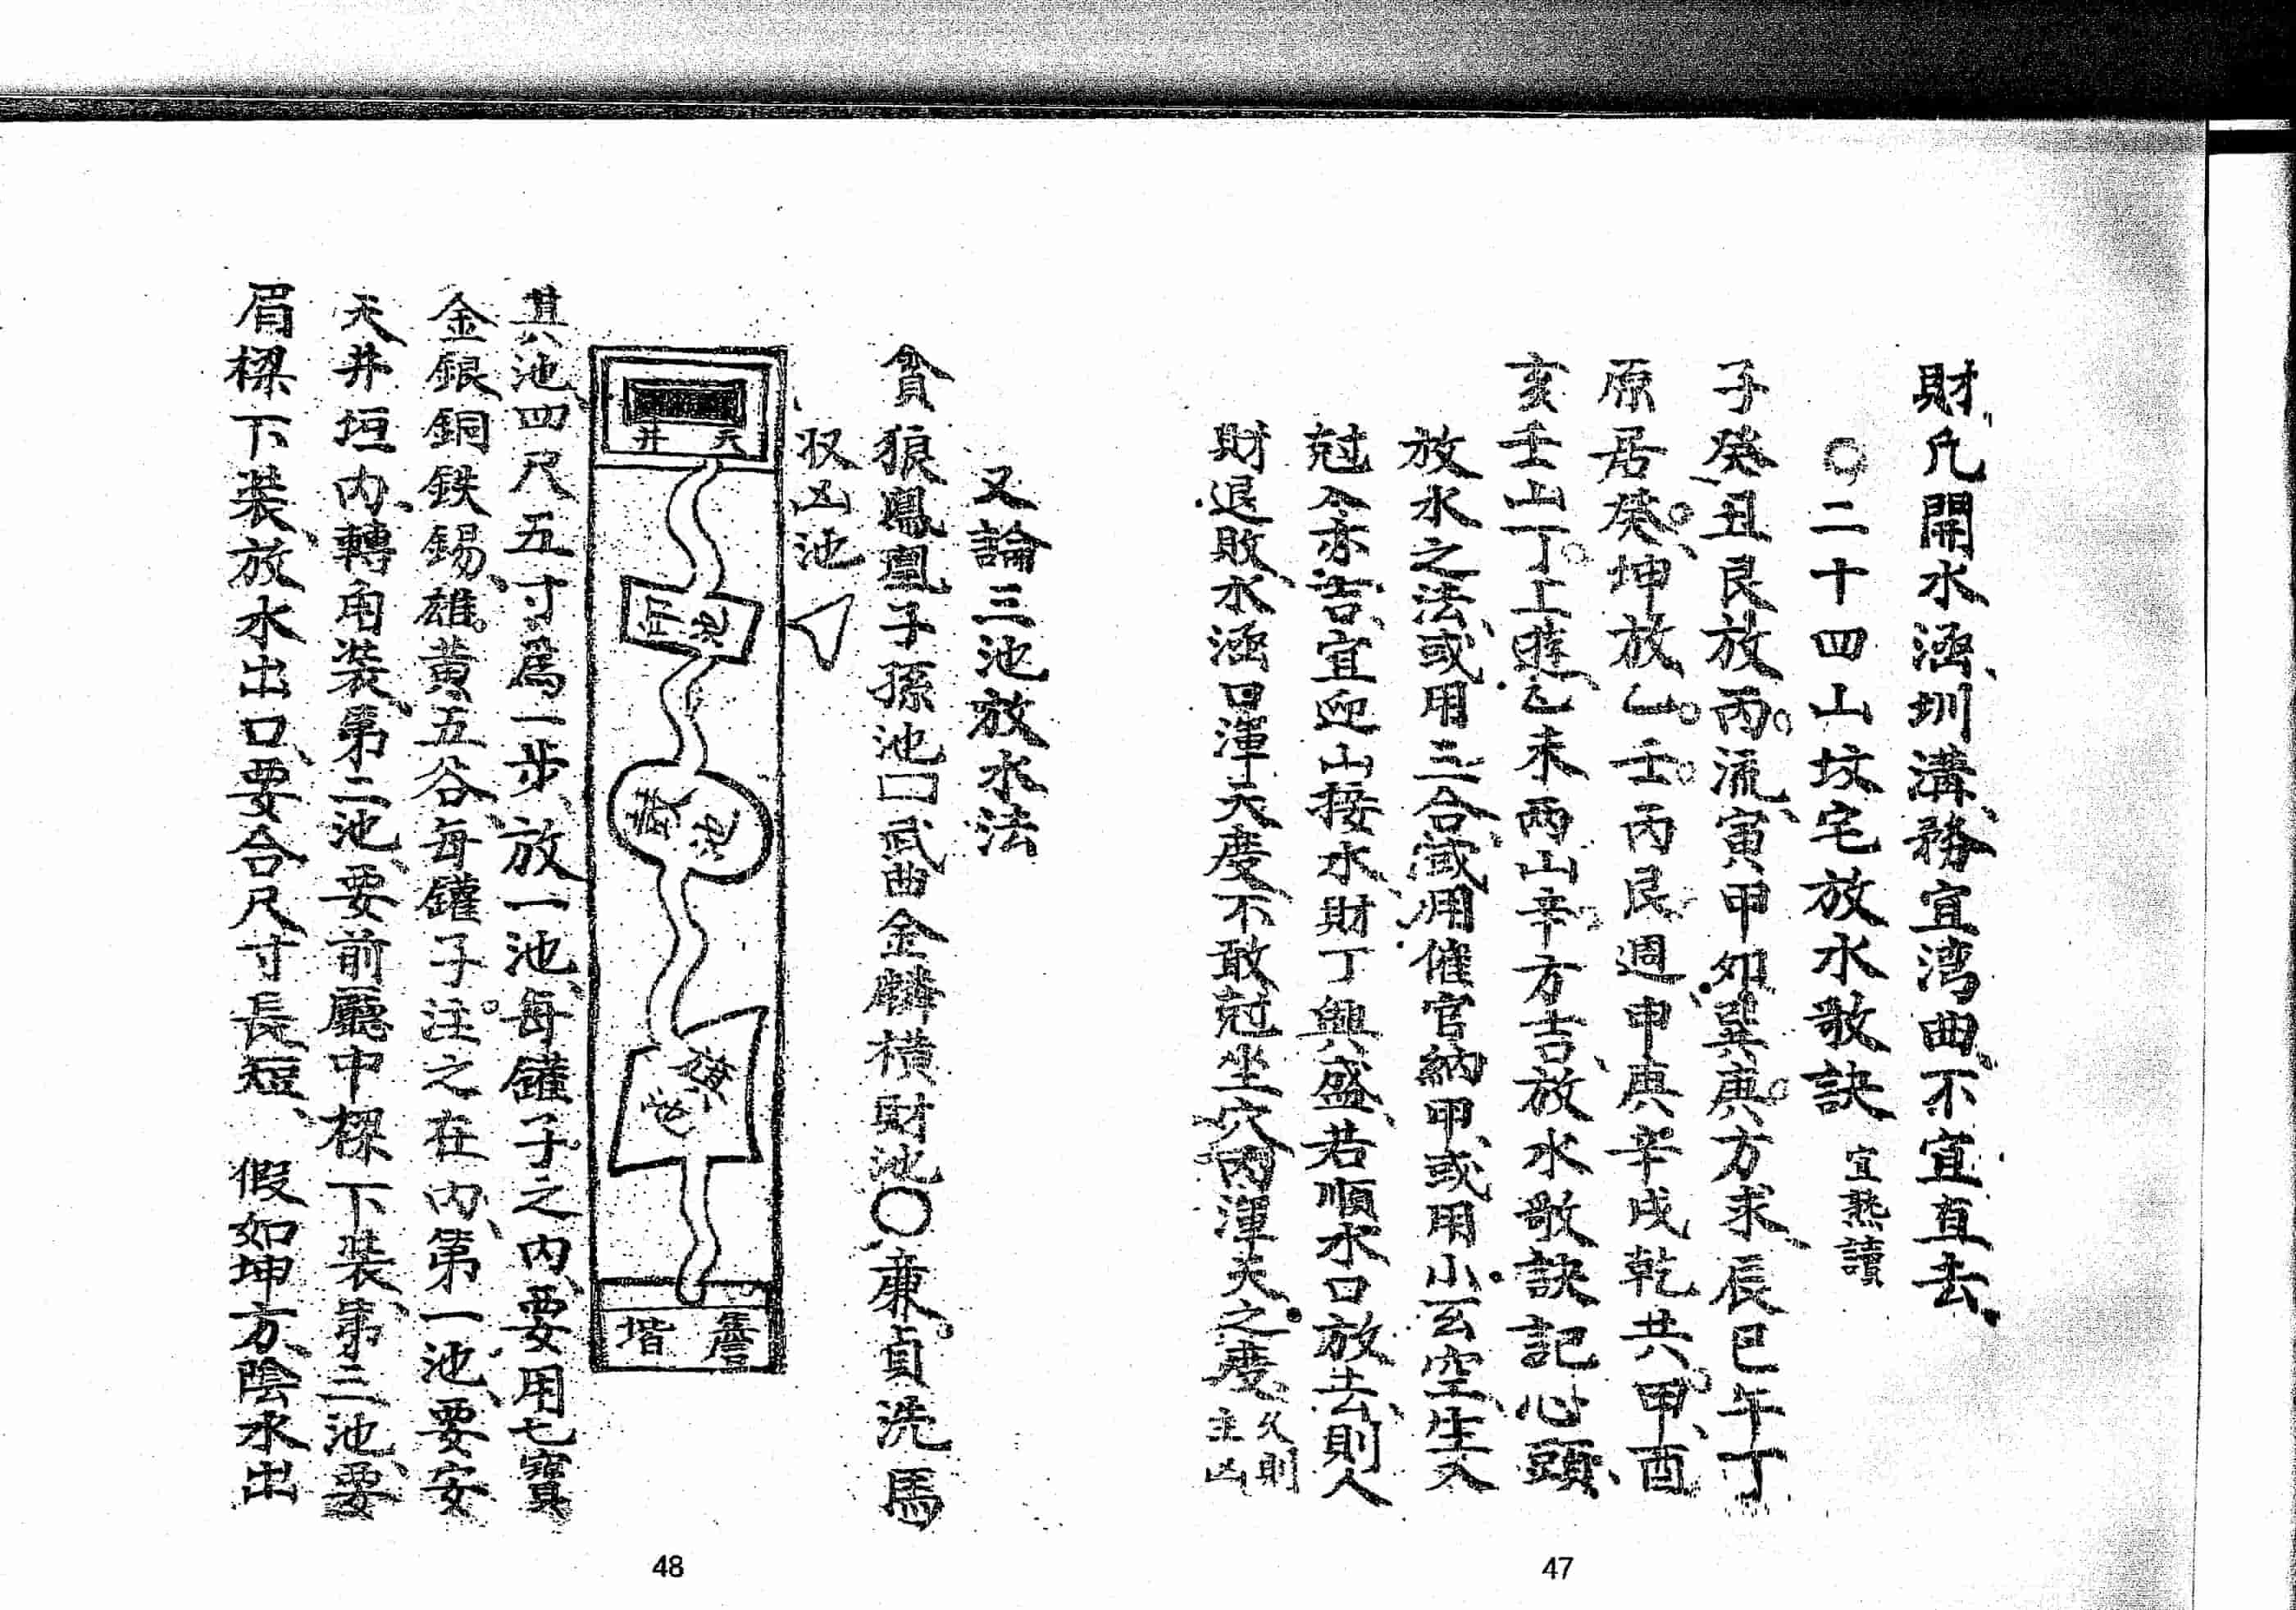 財凢開水涵圳溝務宜湾曲不宜直去
○二十四山坟宅放水歌訣 宜熟讀
子癸丑艮放丙流寅甲卯巽庚方求辰巳午丁
原居癸坤放乙壬丙艮週申庚辛戌乾共甲酉
亥壬山丁上逰乙未兩山辛方吉放水歌訣記心頭
放水之法或用三合或用催官納甲或用小玄空生入
尅入亦吉宜迎山接水財丁興盛若順水口放去則人
財退敗水涵口渾天度不敢尅坐穴内渾天之度久則
主凶
47
又論三池放水法
貪狼鳳凰子孫池口武曲金麟橫財池〇廉貞洗馬
収凶池
天井
池
池
池
簷堦
其池四尺五寸爲一步放一池每鑵子之内要用七寳
金銀銅鉄錫雄黄五谷每鑵子注之在内第一池要安
天井垣内轉角裝第二池要前廳中樑下裝第三池要
眉樑下裝放水出口要合尺寸長短 假如坤方陰水出
48